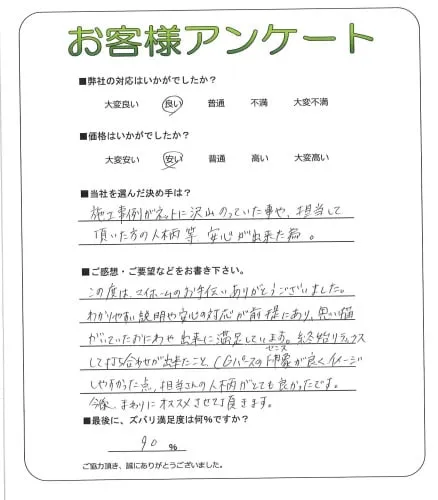 お客様アンケート
■弊社の対応はいかがでしたか？
大変良い 良い 普通 不満 大変不満
■価格はいかがでしたか？
大変安い 安い 普通 高い 大変高い
■当社を選んだ決め手は？
施工事例がネットに沢山のっていた事や、担当して
頂いた方の人柄等 安心が出来た為。
■ご感想・ご要望などをお書き下さい。
この度は、マイホームのお手伝いありがとうございました。
わかりやすい説明や安心の対応が前提にあり、思い描
がいていたおにわや 出来に満足しています。終始リラックス
して打ち合わせが出来たこと、CGパースの印象が良くイメージ
センス
しやすかった点、担当さんの人柄がとても良かったです。
今後、まわりにオススメさせて頂きます。
■最後に、ズバリ満足度は何％ですか？
90 ％
ご協力頂き、誠にありがとうございました。